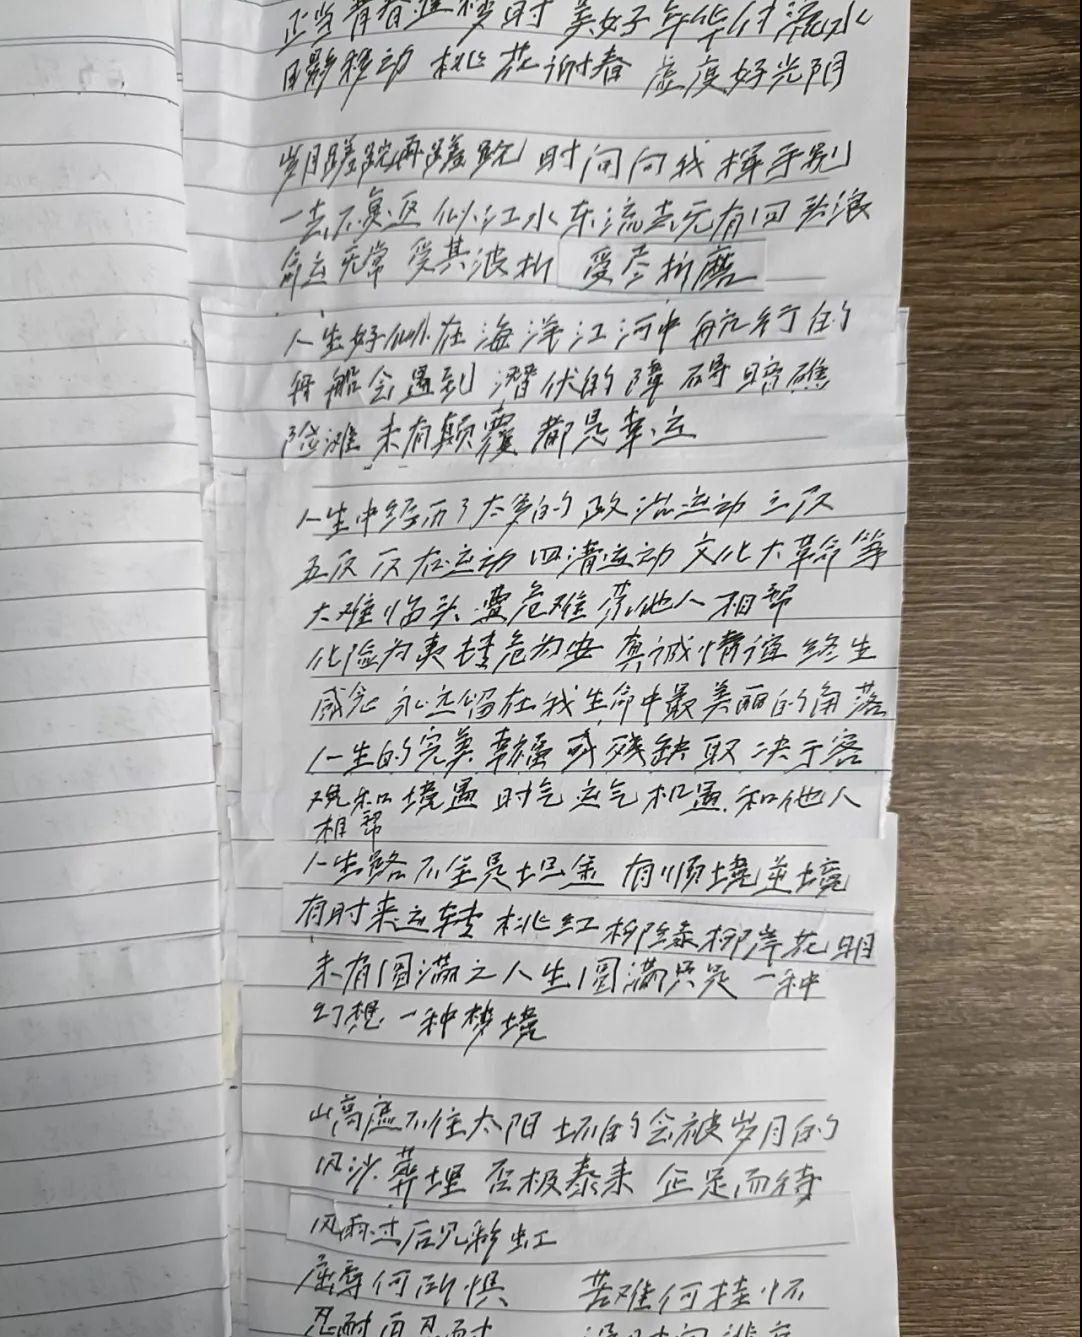 正当青春逐梦时 美好年华付流水
日影移动 桃花谢春 虚度好光阴
岁月蹉跎再蹉跎 时间向我挥手别
一去不复返 似江水东流去无有回头浪
命运无常 受其波折 受尽折磨
人生好似在海洋江河中航行的
舟船会遇到潜伏的障碍暗礁
险滩 未有颠覆都是幸运
人生中经历了太多的政治运动 三反
五反 反右运动 四清运动 文化大革命等
大难临头 遭危难 靠他人相帮
化险为夷 转危为安 真诚情谊 终生
感念 永远留在我生命中最美丽的角落
人生的完美幸福或残缺取决于客
观和境遇 时气运气机遇 和他人
相帮
人生路不全是坦途 有顺境逆境
有时来运转 桃红柳绿柳岸花明
未有圆满之人生 圆满只是一种
幻想 一种梦境
山高遮不住太阳 坏的会被岁月的
风沙葬埋 否极泰来 企足而待
风雨过后见彩虹
屈辱何所惧 苦难何挂怀
忍耐再忍耐